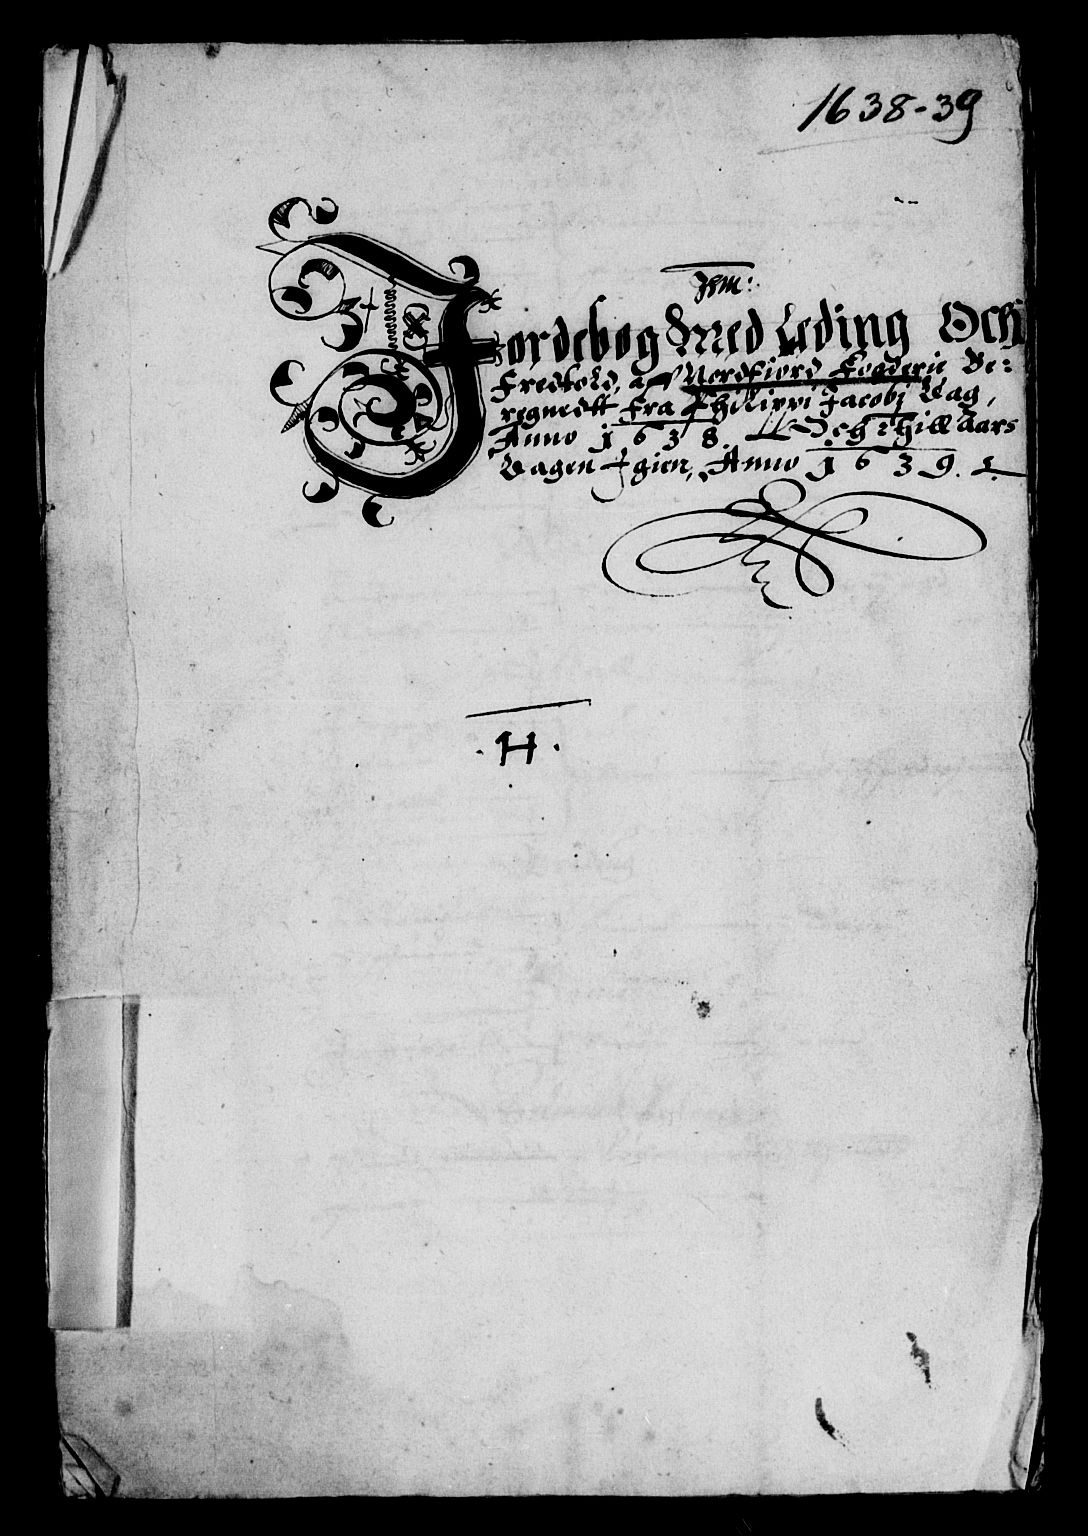 1638-39
Jordebog Med Leding Och
Fredtold, aff Nordfiord Fogderie Be:
regnedtt Fra Philippi Jacobj Dag,
Anno 1638. Och thill Aars
Dagen Igien, Anno 1639.
H